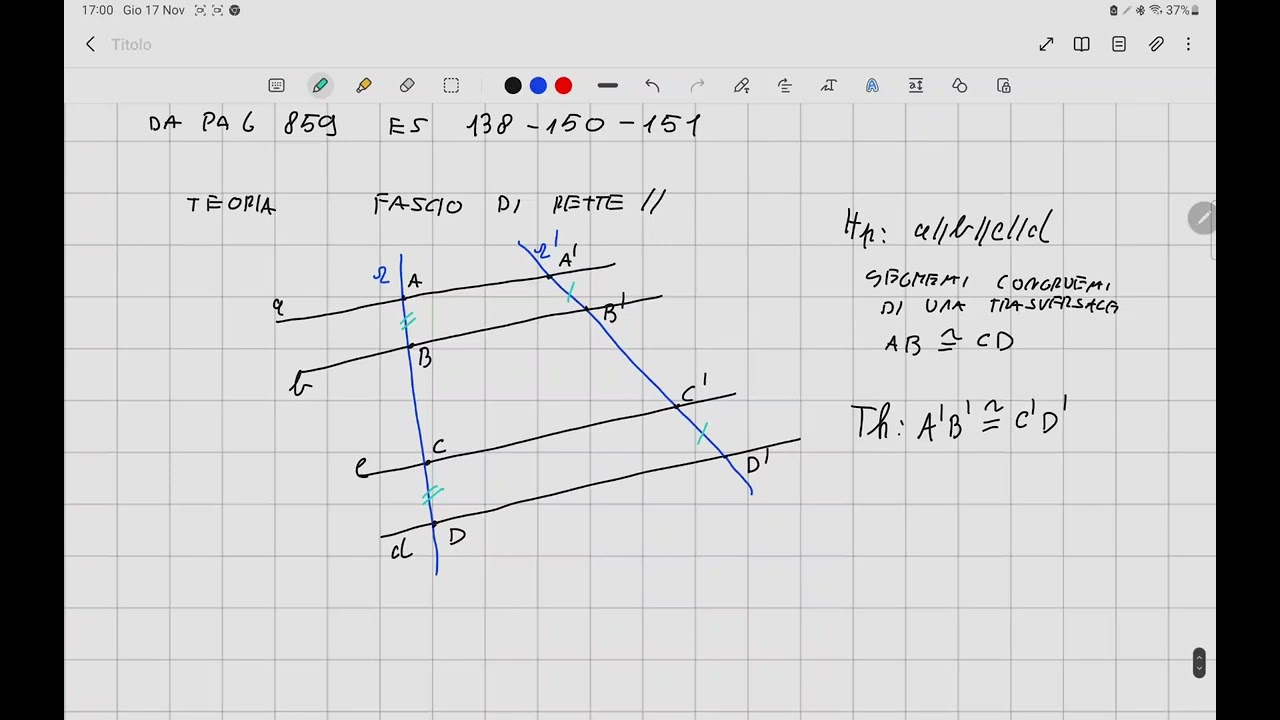 17:00 Gio 17 Nov
37%
Titolo
DA PAG 859 ES 138 - 150 - 151
TEORIA FASCIO DI RETTE //
r
A
r'
A'
a
B'
B
b
C'
C
c
D'
D
d
Hp: a//b//c//d
SEGMENTI CONGRUENTI
DI UNA TRASVERSALE
AB ≅ CD
Th: A'B' ≅ C'D'